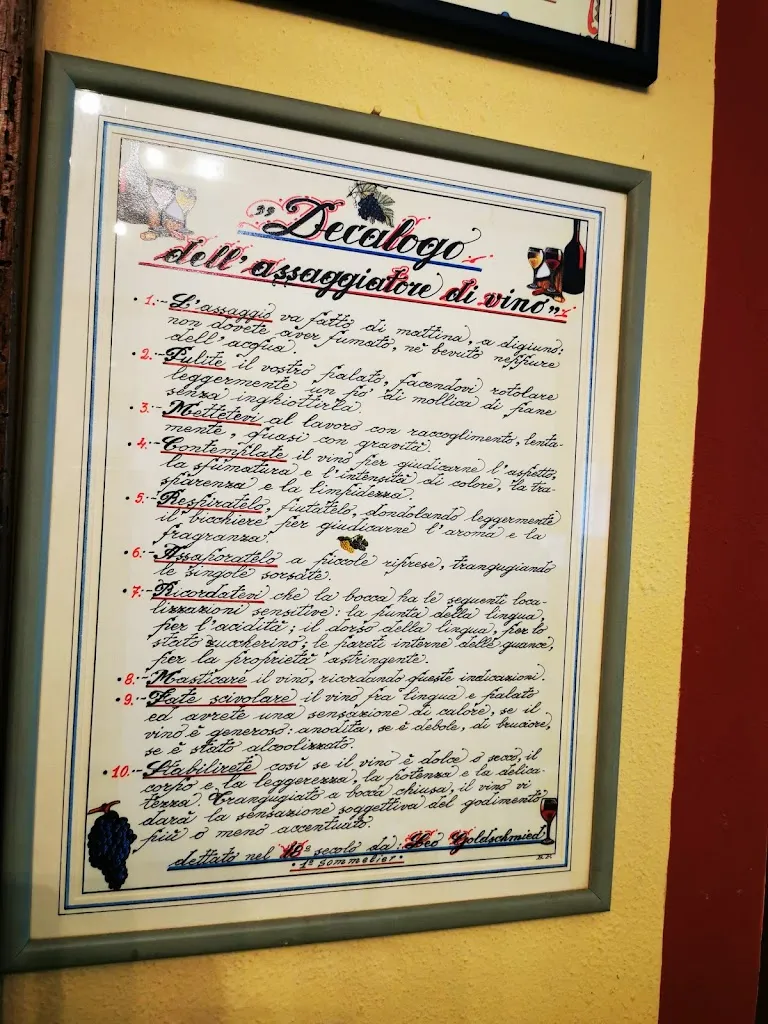 "Decalogo
dell'assaggiatore di vino"
• 1.- L'assaggio va fatto di mattina, a digiuno:
non dovete aver fumato, nè bevuto neppure
dell'acqua.
• 2.- Pulite il vostro palato, facendovi rotolare
leggermente un po' di mollica di pane
senza inghiottirla.
• 3.- Mettetevi al lavoro con raccoglimento, lenta-
mente, quasi con gravità.
• 4.- Contemplate il vino per giudicarne l'aspetto,
la sfumatura e l'intensità di colore, la tra-
sparenza e la limpidezza.
• 5.- Respiratelo, fiutatelo, dondolando leggermente
il bicchiere per giudicarne l'aroma e la
fragranza.
• 6.- Assaporatelo a piccole riprese, trangugiando
le singole sorsate.
• 7.- Ricordatevi che la bocca ha le seguenti loca-
lizzazioni sensitive: la punta della lingua,
per l'acidità; il dorso della lingua, per lo
stato zuccherino; le pareti interne delle guance,
per la proprietà astringente.
• 8.- Masticare il vino, ricordando queste indicazioni.
• 9.- Fate scivolare il vino fra lingua e palato
ed avrete una sensazione di calore, se il
vino è generoso: anodita, se è debole, di bruciore,
se è stato alcoolizzato.
• 10.- Stabilirete così se il vino è dolce o secco, il
corpo e la leggerezza, la potenza e la delica-
tezza. Trangugiato a bocca chiusa, il vino vi
darà la sensazione soggettiva del godimento
più o meno accentuato.
dettato nel secolo da: Leo Goldschmied
• 1° Sommelier •